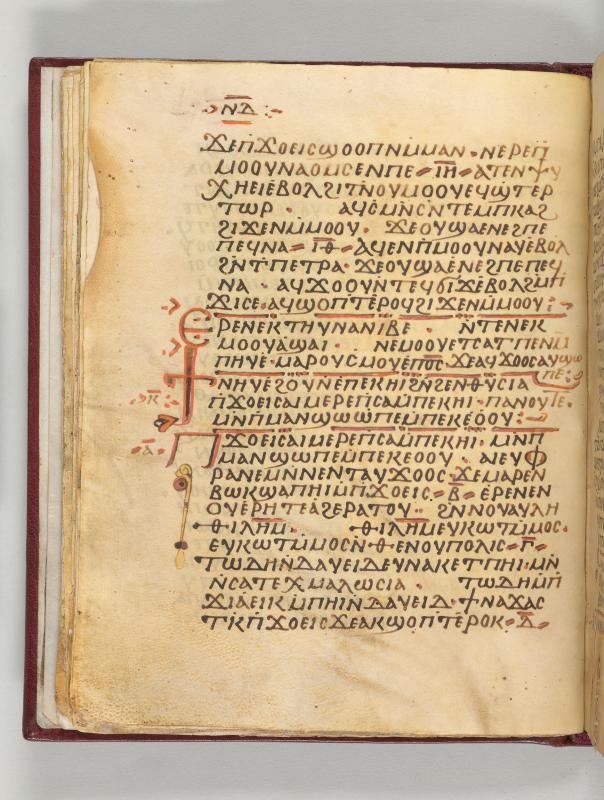 ⲛ̅ⲇ̅
ϫⲉⲡ̅ϫⲟⲉⲓⲥϣⲟⲟⲡⲛⲙⲙⲁⲛ · ⲛⲉⲣⲉⲡ
ⲙⲟⲟⲩⲛⲁⲟⲙⲥⲉⲛⲡⲉ ⲓ̅ⲏ̅ ⲁⲧⲉⲛϯⲩ
ⲭⲏⲉⲓⲉⲃⲟⲗϩⲓⲧⲛⲟⲩⲙⲟⲟⲩⲉϥϣⲧⲉⲣ
ⲧⲱⲣ · ⲁϥⲥⲙⲛⲥⲛⲧⲉⲙⲡⲕⲁϩ
ϩⲓϫⲉⲛⲙⲙⲟⲟⲩ · ϫⲉⲟⲩϣⲁⲉⲛⲉϩⲡⲉ
ⲡⲉϥⲛⲁ ⲓ̅ⲑ̅ ⲁϥⲉⲛⲡⲙⲟⲟⲩⲛⲁⲩⲉⲃⲟⲗ
ϩⲛⲧⲡⲉⲧⲣⲁ · ϫⲉⲟⲩϣⲁⲉⲛⲉϩⲡⲉⲡⲉϥ
ⲛⲁ · ⲁϥϫⲟⲟⲩⲛⲧⲉϥϭⲓϫⲉⲃⲟⲗϩⲙⲡ
ϫⲓⲥⲉ · ⲁϥϣⲟⲡⲧⲉⲣⲟϥϩⲓϫⲉⲛⲙⲙⲟⲟⲩ
ⲉⲣⲉⲛⲉⲕⲧⲏⲩⲛⲁⲛⲓⲃⲉ · ⲛⲧⲉⲛⲉⲕ
ⲙⲟⲟⲩⲁϣⲁⲓ · ⲛⲉⲙⲟⲟⲩⲉⲧⲥⲁⲧⲡⲉⲛⲙ
ⲡⲏⲩⲉ · ⲙⲁⲣⲟⲩⲥⲙⲟⲩⲉⲡⲟ̅ⲥ̅ · ϫⲉⲁϥϫⲟⲟⲥⲁⲩϣⲱ
ⲡⲉ
ϯⲛⲏⲩⲉϩⲟⲩⲛⲉⲡⲉⲕⲏⲓϩⲛϩⲉⲛⲑⲩⲥⲓⲁ
ⲕ̅ ⲡϫⲟⲉⲓⲥⲁⲓⲙⲉⲣⲉⲡⲥⲁⲙⲡⲉⲕⲏⲓ · ⲡⲁⲛⲟⲩⲧⲉ ·
ⲙⲛⲡⲙⲁⲛϣⲱⲱⲡⲉⲙⲡⲉⲕⲉⲟⲟⲩ
ⲁ̅ ⲡϫⲟⲉⲓⲥⲁⲓⲙⲉⲣⲉⲡⲥⲁⲙⲡⲉⲕⲏⲓ · ⲙⲛⲡ
ⲙⲁⲛϣⲱⲡⲉⲙⲡⲉⲕⲉⲟⲟⲩ · ⲁⲓⲉⲩⲫ
ⲣⲁⲛⲉⲙⲛⲛⲉⲛⲧⲁⲩϫⲟⲟⲥ · ϫⲉⲙⲁⲣⲉⲛ
ⲃⲱⲕϣⲁⲡⲏⲓⲙⲡϫⲟⲉⲓⲥ · ⲃ̅ ⲉⲣⲉⲛⲉⲛ
ⲟⲩⲉⲣⲏⲧⲉⲁϩⲉⲣⲁⲧⲟⲩ · ϩⲛⲛⲟⲩⲁⲩⲗⲏ
ⲑⲓⲗⲏⲙ · ⲑⲓⲗⲏⲙⲉⲩⲕⲱⲧⲙⲙⲟⲥ ·
ⲉⲩⲕⲱⲧⲙⲙⲟⲥⲛⲑⲉⲛⲟⲩⲡⲟⲗⲓⲥ ⲅ̅
ⲧⲱⲇⲏⲛⲇⲁⲩⲉⲓⲇⲉⲩⲛⲁⲕⲉⲧⲡⲏⲓ · ⲙⲛ
ⲛⲥⲁⲧⲉⲭⲙⲁⲗⲱⲥⲓⲁ · ⲧⲱⲇⲏⲙⲡ
ϫⲓⲁⲉⲓⲕⲙⲡⲏⲓⲛⲇⲁⲩⲉⲓⲇ · ϯⲛⲁⲭⲁⲥ
ⲧⲕⲡϫⲟⲉⲓⲥϫⲉⲁⲕϣⲟⲡⲧⲉⲣⲟⲕ ⲇ̅